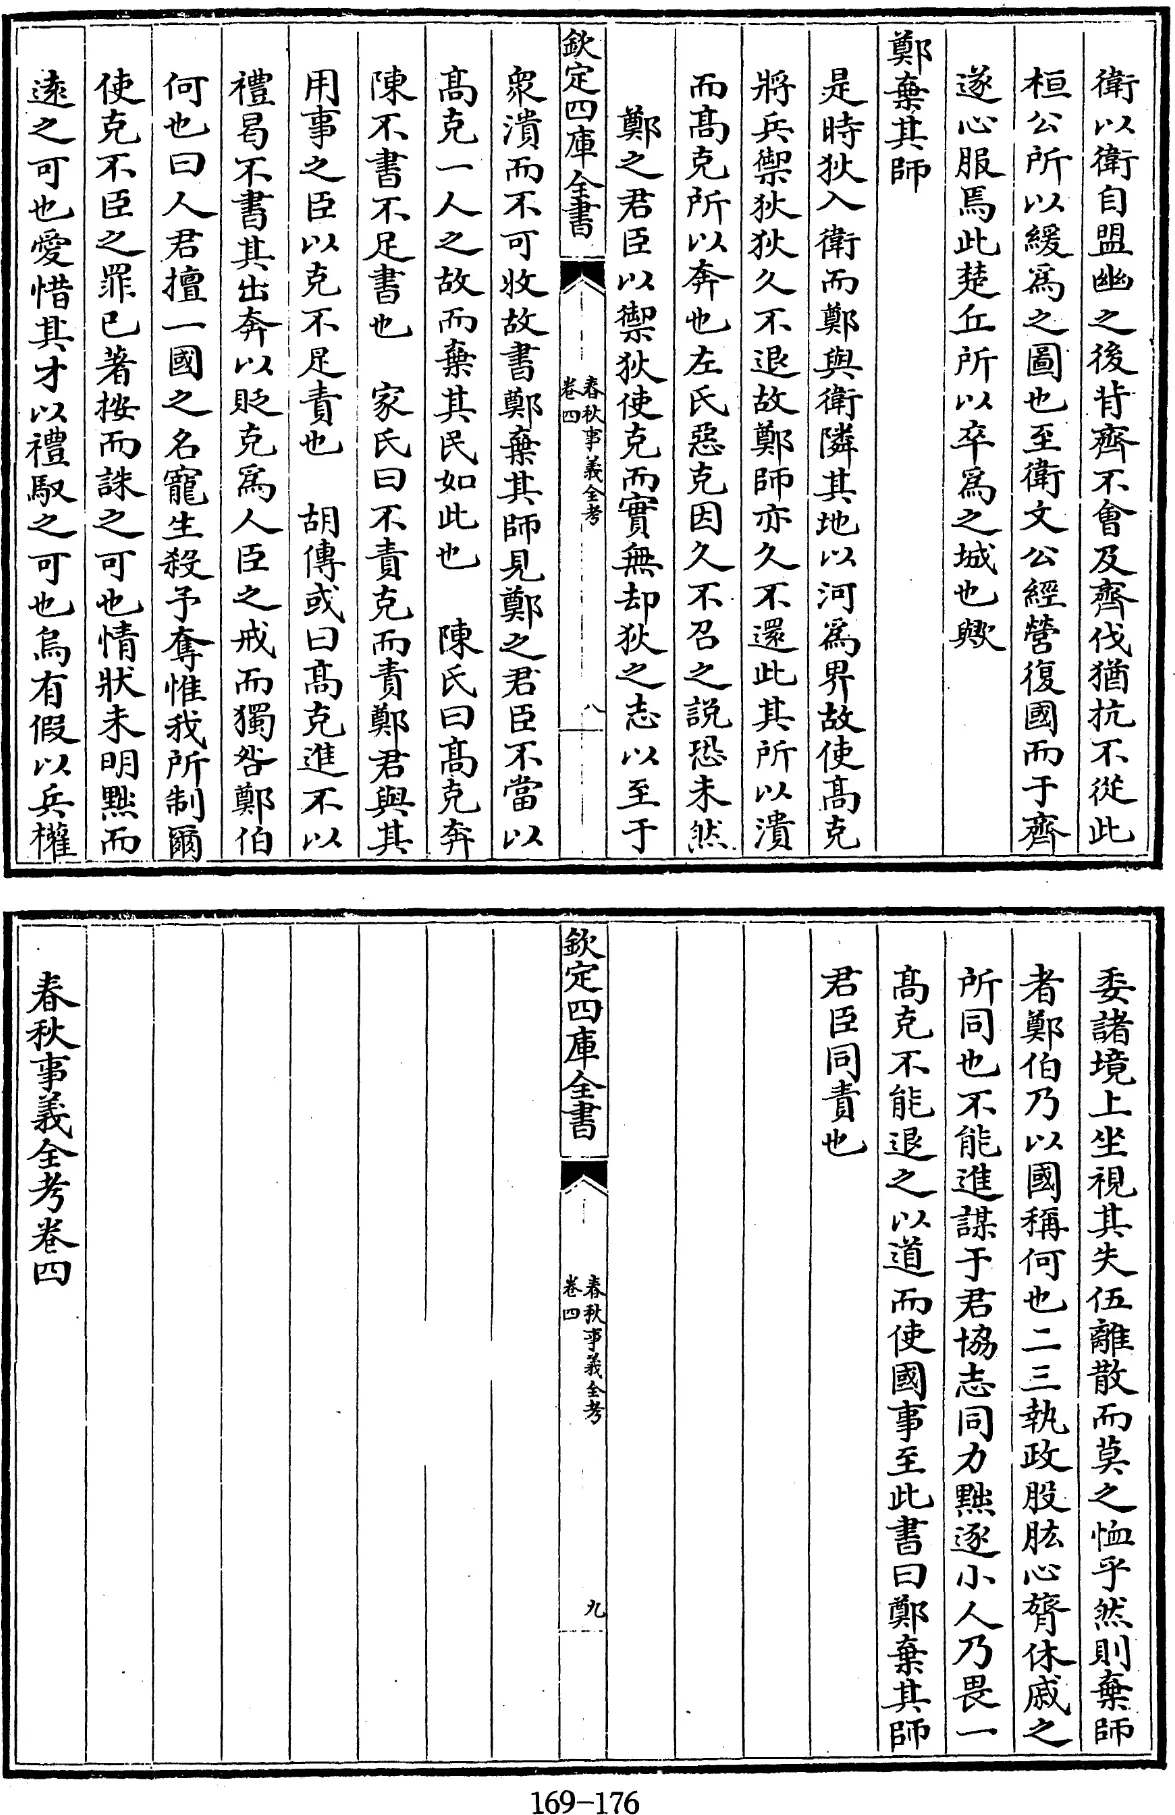 衛以衛自盟幽之後背齊不會及齊伐猶抗不從此
桓公所以緩為之圖也至衛文公經營復國而于齊
遂心服焉此楚丘所以卒為之城也歟
鄭棄其師
是時狄入衛而鄭與衛隣其地以河為界故使髙克
將兵禦狄狄久不退故鄭師亦久不還此其所以潰
而髙克所以奔也左氏惡克因久不召之説恐未然
鄭之君臣以禦狄使克而實無却狄之志以至于
欽定四庫全書
春秋事義全考
卷四
八
衆潰而不可收故書鄭棄其師見鄭之君臣不當以
髙克一人之故而棄其民如此也 陳氏曰髙克奔
陳不書不足書也 家氏曰不責克而責鄭君與其
用事之臣以克不足責也 胡傳或曰髙克進不以
禮曷不書其出奔以貶克為人臣之戒而獨咎鄭伯
何也曰人君擅一國之名寵生殺予奪惟我所制爾
使克不臣之罪已著按而誅之可也情狀未明黜而
逺之可也愛惜其才以禮馭之可也烏有假以兵權
委諸境上坐視其失伍離散而莫之恤乎然則棄師
者鄭伯乃以國稱何也二三執政股肱心膂休戚之
所同也不能進謀于君協志同力黜逐小人乃畏一
髙克不能退之以道而使國事至此書曰鄭棄其師
君臣同責也
欽定四庫全書
春秋事義全考
卷四
九
春秋事義全考卷四
169-176